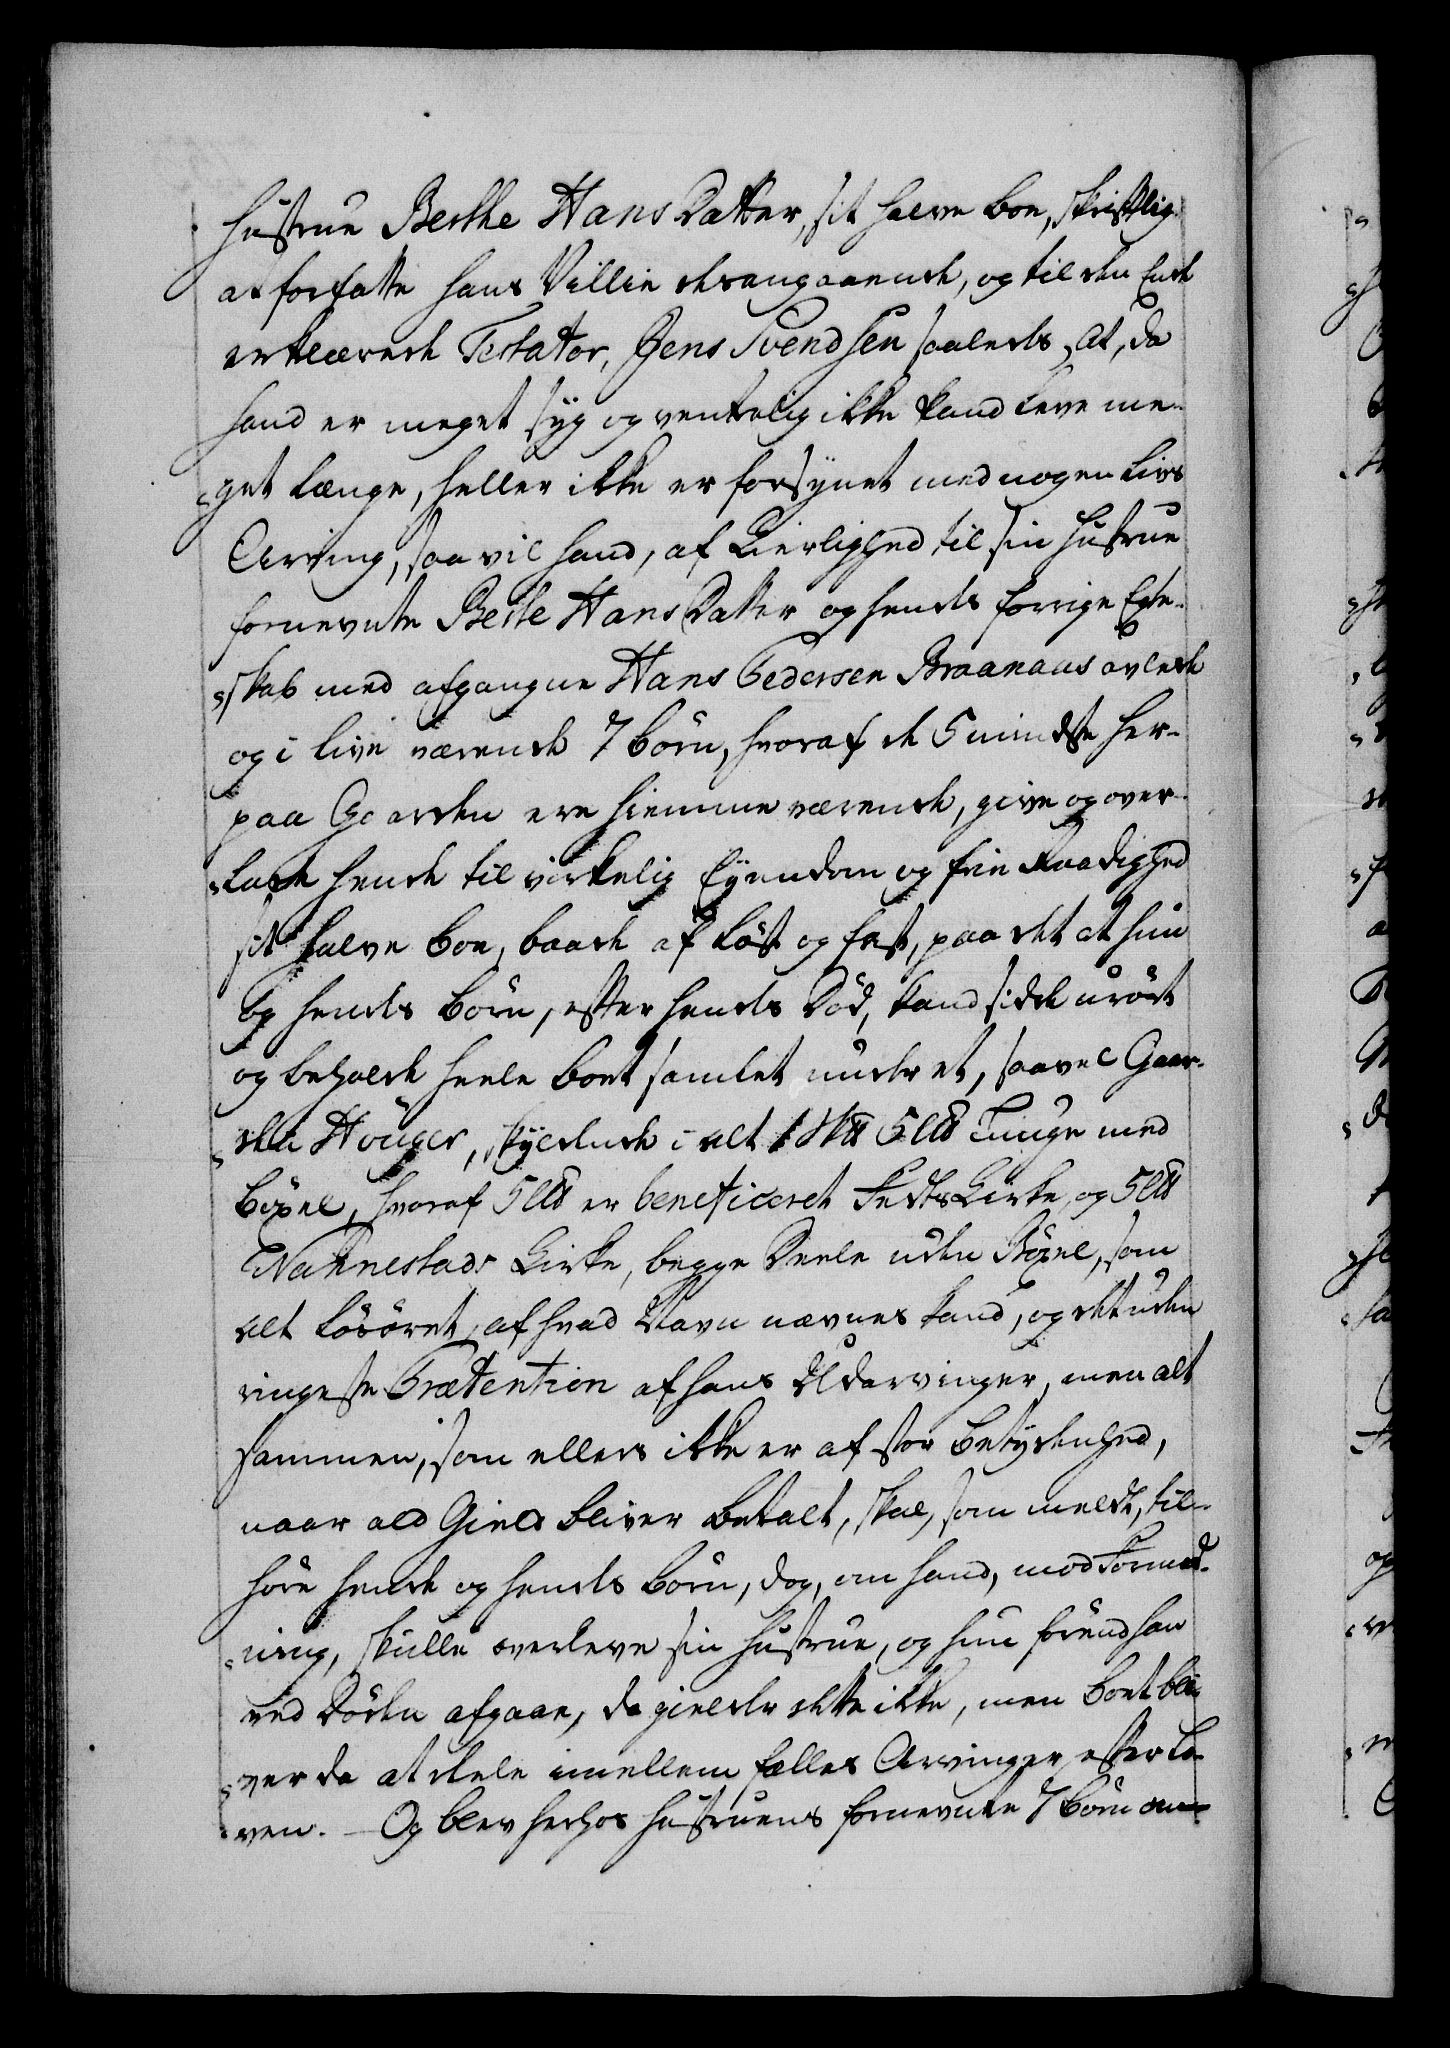 Hustrue Berthe HansDatter, sit halve Boe, skriftlig
at forfatte hans Villie desangaaende, og til den Ende
erklærede Testator, Jens Svendsen saaledes, At, da
hand er meget syg og ventelig ikke kand leve me-
get længe, heller ikke er forsynet med nogen Livs
Arving, saa vil hand, af Kierlighed til sin Hustrue
fornevnte Berte HansDatter og hends forrige Egte-
skab med afgangne Hans Pedersen Braanaas avlede
og i live værende 7 Børn, hvoraf de 5 mindste her-
paa Gaarden ere hiemmeværende, give og over-
lade hende til virkelig Eyendom og frie Raadighed
sit halve Boe, baade af Løst og fast, paa det at hun
og hends Børn, efter hends Død, kand sidde urørt
og beholde heele Boet samlet uuderet, saavel Gaar-
den Høuger, skyldende i alt 1 Sk℔ 5 L℔ Tunge med
Bøxel, hvoraf 5 L℔ er beneficeret Fedts Kirke, og 5 L℔
Nannestads Kirke, begge Deele uden Bøxel, som
alt Løsøret, af hvad Navn nævnes kand, og det uden
ringeste Prætention af hans Udarvinger, men alt
sammen, som ellers ikke er af stor Betydenhed,
naar ald Gield bliver betalt, skal, som meldt, til-
høre hende og hends Børn, dog, om hand, mod Formod-
ning, skulle overleve sin Hustrue, og hun førend han
ved Døden afgaae, da gielder dette ikke, men Boet bli-
ver da at dele imellem fælles Arvinger efter Lo-
ven. – Og blev herhos Hustruens fornevnte 7 Børn om-